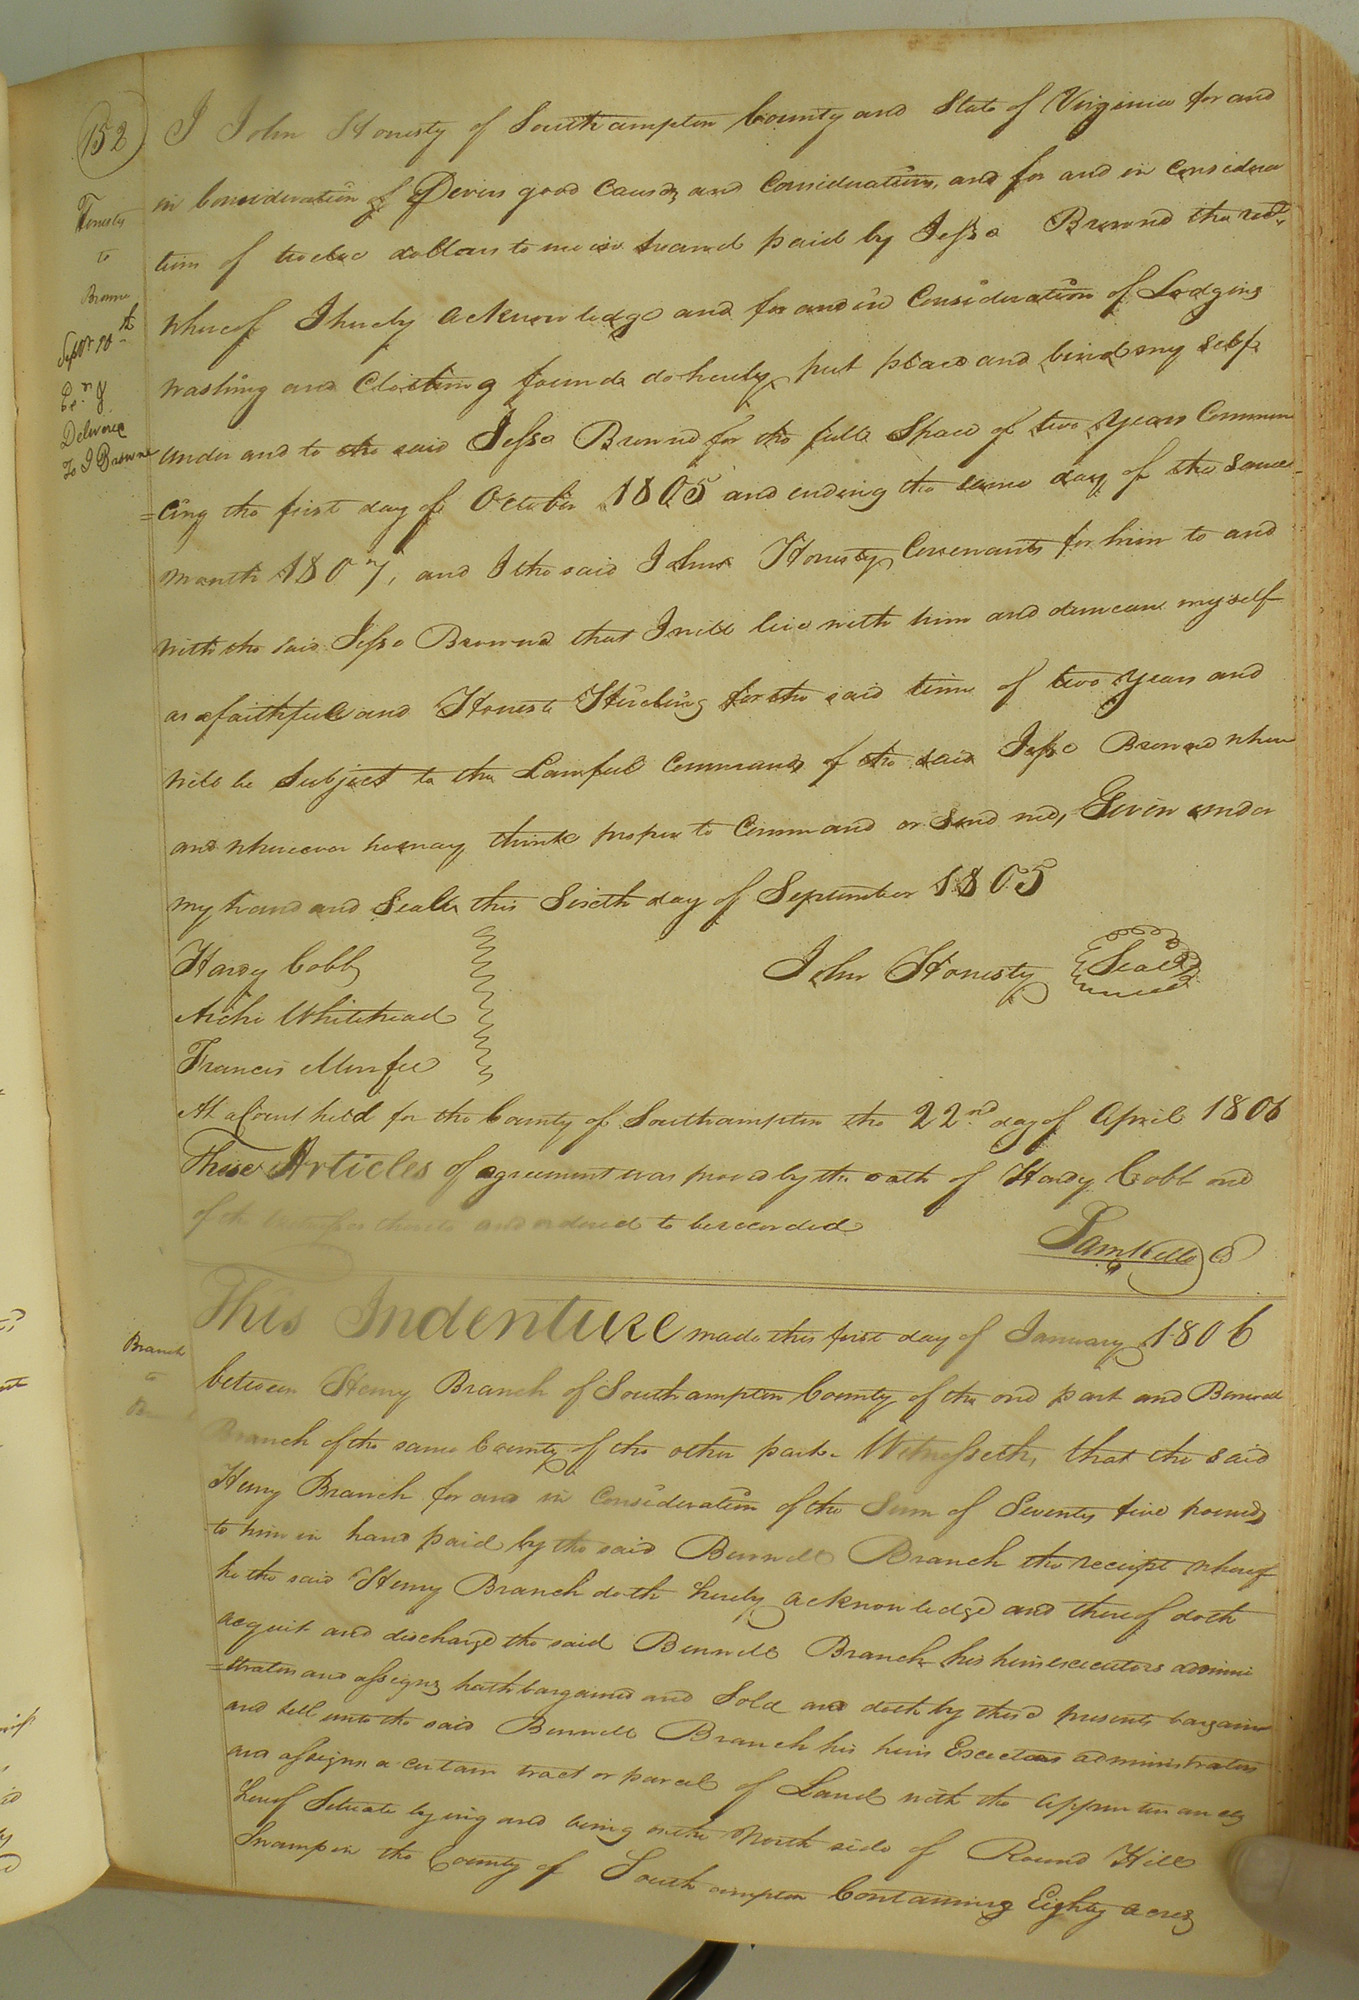 152
Honesty
to
Browne
Sept 10th
Ex.d &
Delivered
To J Browne
I John Honesty of Southampton County and State of Virginia for and
in Consideration of Divers good Causes and Considerations, and for and in Considera
tion of twelve dollars to me in hand paid by Jesse Browne the rect.
whereof I hereby acknowledge and for and in Consideration of Lodging
washing and Cloathing found do hereby put place and bind my self
under and to the said Jesse Browne for the full Space of two years Commen
=cing the first day of October 1805 and ending the same day of the same
month 1807, and I the said John Honesty Covenants for him to and
with the said Jesse Browne that I will live with him and demeane myself
as a faithfull and Honest Hireling for the said time of two years and
will be Subject to the Lawfull Commands of the said Jesse Browne when
and wherever he may think proper to Command or Send me, Given under
my hand and Seale this Sixth day of September 1805
Hardy Cobb
John Honesty Seal
Archi Whitehead
Francis Murfee
At a Court held for the County of Southampton the 22nd day of April 1806
These Articles of agreement was proved by the oath of Hardy Cobb one
of the Witnesses thereto and ordered to be recorded
Sam Kello C
This Indenture made this first day of January 1806
Branch
to
B
between Henry Branch of Southampton County of the one part and Bennett
Branch of the same County of the other part. Witnesseth, that the said
Henry Branch for and in Consideration of the Sum of Seventy five pounds
to him in hand paid by the said Bennett Branch the receipt whereof
he the said Henry Branch doth hereby acknowledge and thereof doth
acquit and discharge the said Bennett Branch his heirs executors admini
=strators and assigns hath bargained and Sold and doth by these presents bargain
and sell unto the said Bennett Branch his heirs Executors administrators
and assigns a certain tract or parcel of Land with the appurtenances
hereof Situate lying and being on the North side of Round Hill
Swamp in the County of Southampton Containing Eighty acres